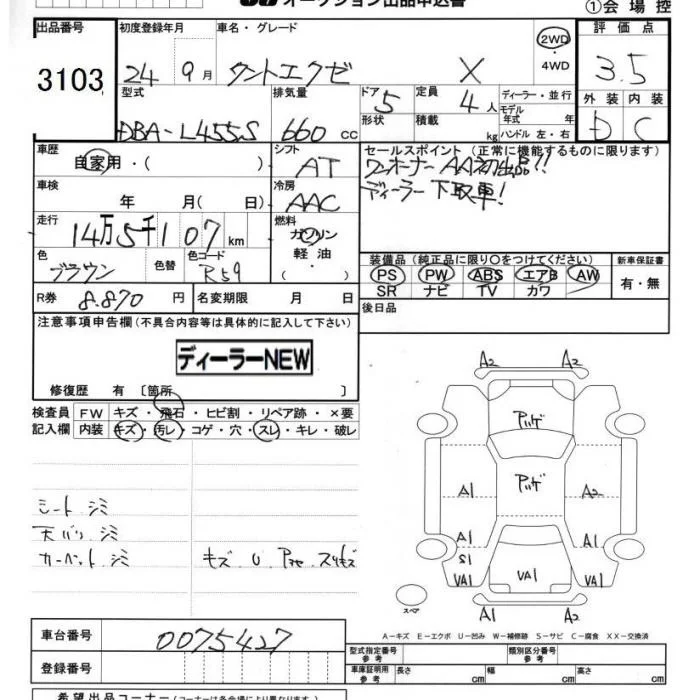 オークション出品申込書
①会場控
出品番号 初度登録年月 車名・グレード 2WD・4WD 評価点
3103 24 9月 タントエクゼ X 3.5
型式 排気量 ドア 5 定員 4人 ディーラー・並行 外装 内装
モデル年式 年
DBA-L455S 660cc 形状 積載 kg ハンドル 左・右 D C
車歴 シフト セールスポイント(正常に機能するものに限ります)
自家用・( ) AT ワンオーナー AA初出品!!
車検 冷房 ディーラー下取車!
年 月( 日) AAC
走行 燃料
14万5千107km ガソリン
色 色替 色コード 軽油・ 装備品(純正品に限り○をつけてください) 新車保証書
ブラウン R59 ( ) PS PW ABS エアB AW 有・無
SR ナビ TV カワ
R券 8.870円 名変期限 月 日 後日品
注意事項申告欄(不具合内容等は具体的に記入して下さい)
ディーラーNEW
修復歴 有 〔箇所 〕
検査員 FW キズ・飛石・ヒビ割・リペア跡・×要
記入欄 内装 キズ・汚レ・コゲ・穴・スレ・キレ・破レ
シート シミ
天バリ シミ
カーペット シミ キズ U
A2 A2
アハゲ
アハゲ
A1 A2
A1 A1
S1
VA1 VA1 VA1
スペア A1 A2
A-キズ E-エクボ U-凹み W-補修跡 S-サビ C-腐食 XX-交換済
車台番号 0075427
登録番号
型式指定番号 参考 類別区分番号 参考
車庫証明用 参考 長さ cm 幅 cm 高さ cm
希望出品コーナー(コーナーは各会場により異なります)